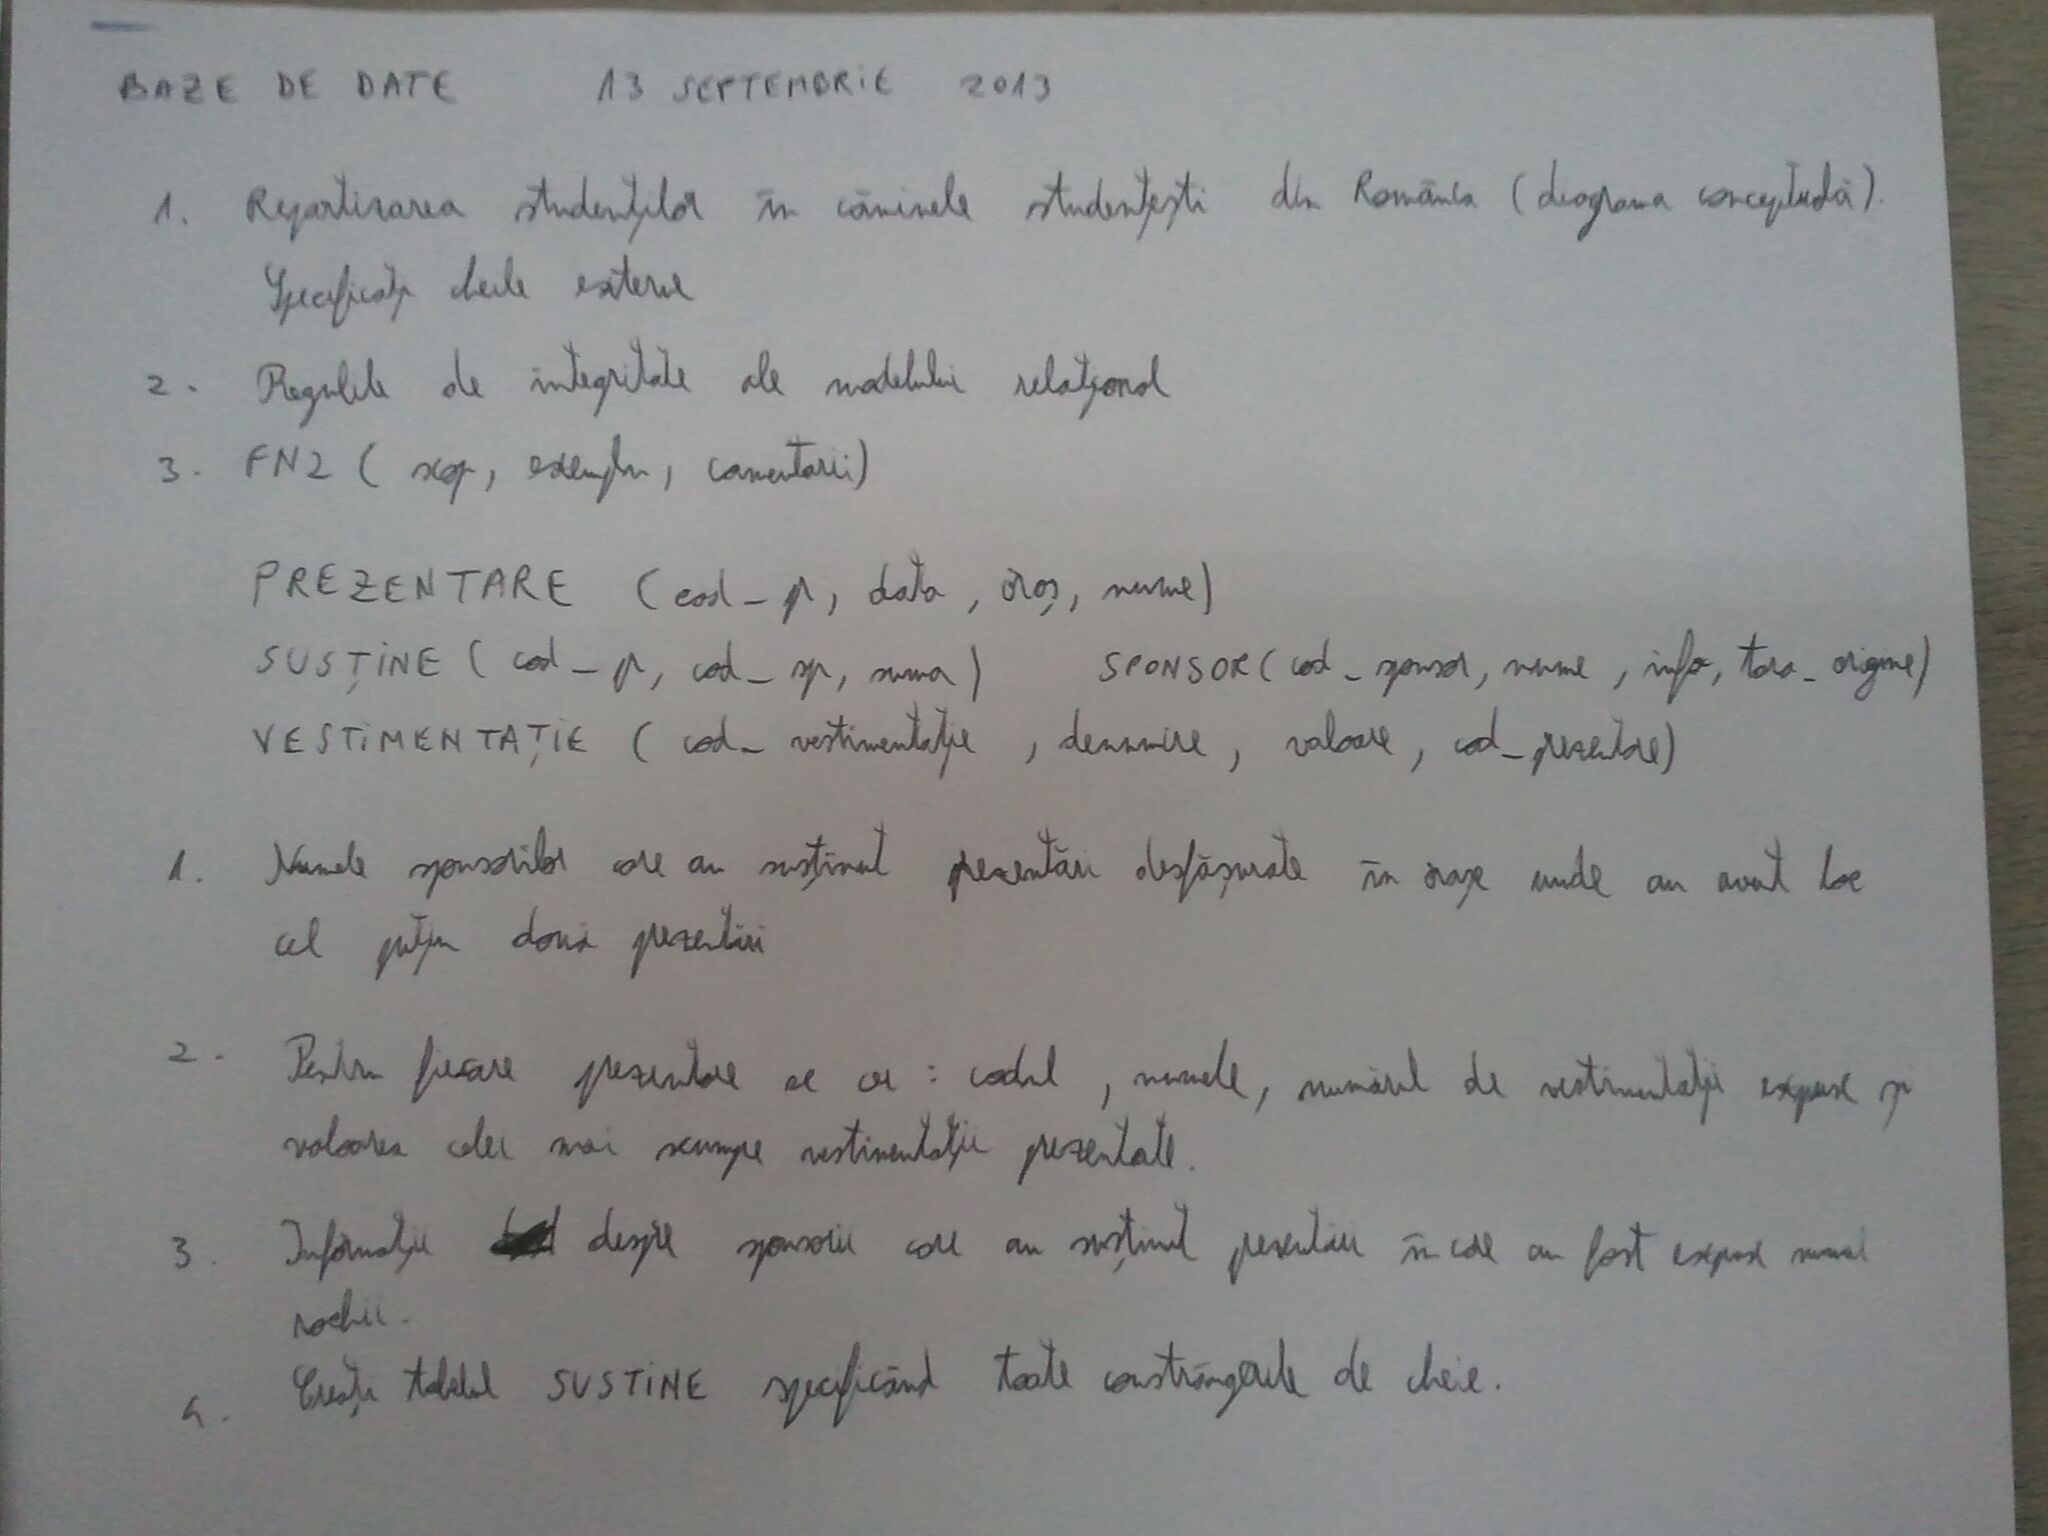 BAZE DE DATE 13 SEPTEMBRIE 2013
1. Repartizarea studenților în căminele studențești din România (diagrama conceptuală).
Specificați cheile externe
2. Regulile de integritate ale modelului relațional
3. FN2 (scop, exemplu, comentarii)
PREZENTARE (cod_p, data, oraș, nume)
SUSȚINE (cod_p, cod_sp, suma) SPONSOR (cod_sponsor, nume, info, tara_origine)
VESTIMENTAȚIE (cod_vestimentație, denumire, valoare, cod_prezentare)
1. Numele sponsorilor care au susținut prezentări desfășurate în orașe unde au avut loc
cel puțin două prezentări
2. Pentru fiecare prezentare se cer: codul, numele, numărul de vestimentații expuse și
valoarea celei mai scumpe vestimentații prezentate.
3. Informații despre sponsorii care au susținut prezentări în care au fost expuse numai
rochii.
4. Creați tabelul SUSTINE specificând toate constrângerile de cheie.